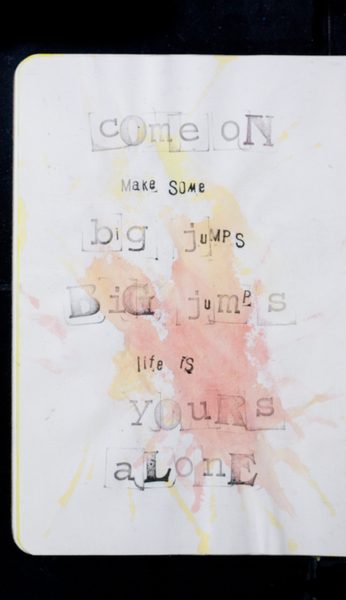 come oN
Make SOMe
big juMPS
BiG jumPs
life iS
yOuRs
aLOnE